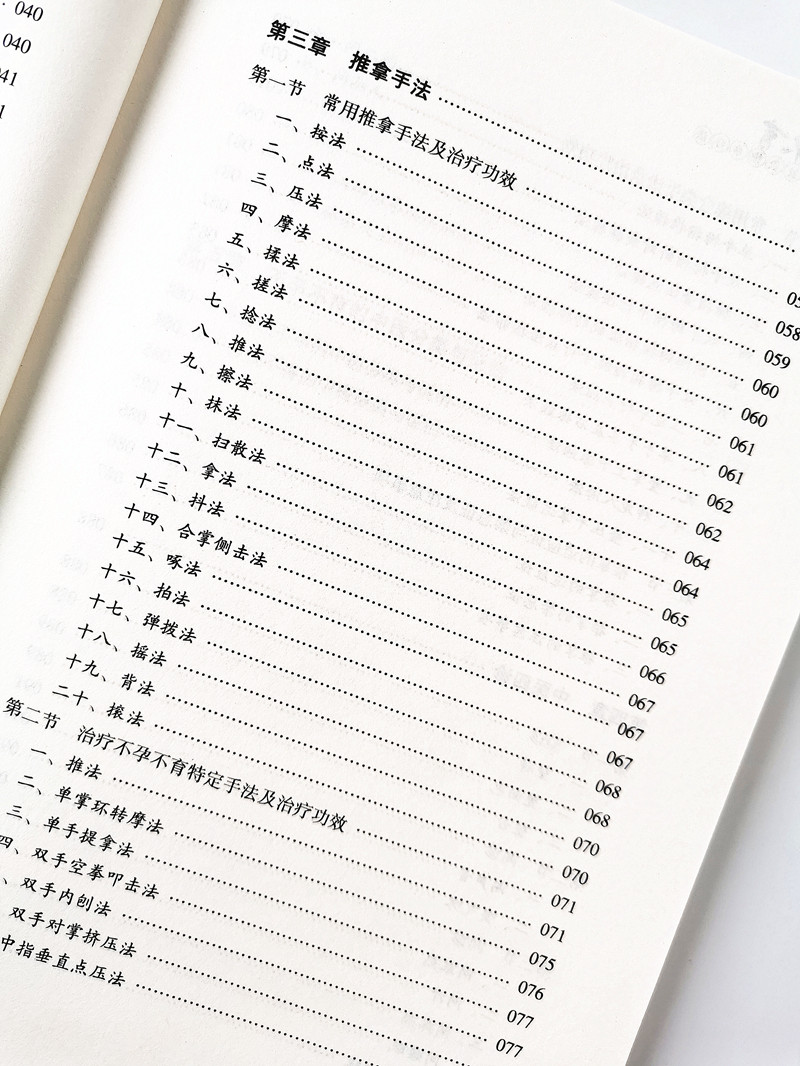 040
040
41
1
第三章 推拿手法
第一节 常用推拿手法及治疗功效 05
一、按法 058
二、点法 059
三、压法 060
四、摩法 060
五、揉法 061
六、搓法 061
七、捻法 062
八、推法 062
九、擦法 064
十、抹法 064
十一、扫散法 065
十二、拿法 065
十三、抖法 066
十四、合掌侧击法 067
十五、啄法 067
十六、拍法 067
十七、弹拨法 068
十八、摇法 068
十九、背法 070
二十、滚法 070
第二节 治疗不孕不育特定手法及治疗功效 071
一、推法 071
二、单掌环转摩法 075
三、单手提拿法 076
四、双手空拳叩击法 077
、双手内刨法 077
双手对掌挤压法
中指垂直点压法